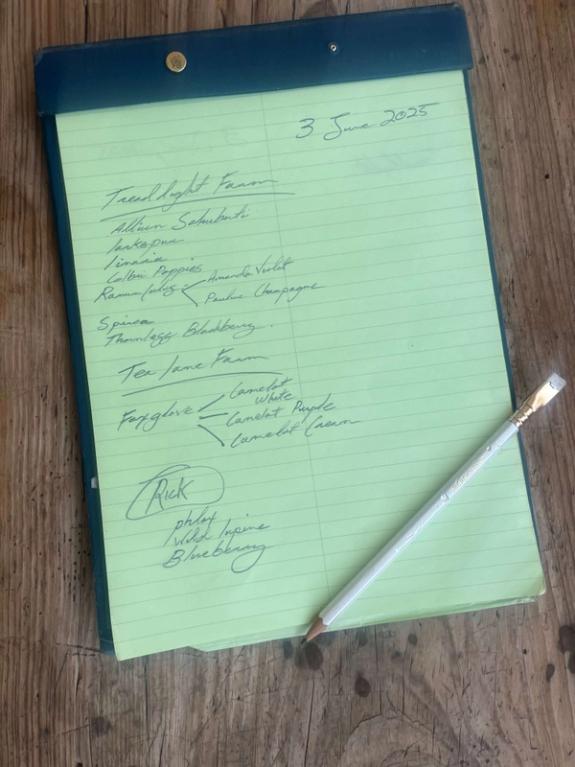 3 June 2025
Tread Light Farm
Allium Schuberti
larkspur
linaria
Colibri Poppies
Ranunculus Amandine Violet
Pauline Champagne
Spirea
Thornless Blackberry.
Tea Lane Farm
Foxglove Camelot White
Camelot Purple
Camelot Cream
RICK
phlox
Wild lupine
Blueberry